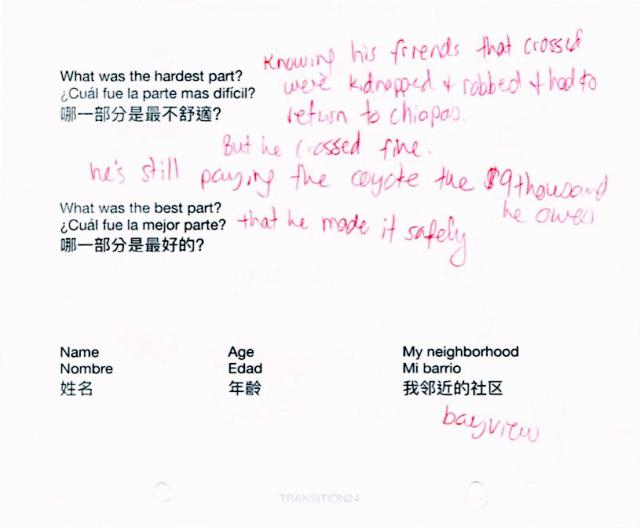 Knowing his friends that crossed
What was the hardest part?
¿Cuál fue la parte mas difícil?
哪一部分是最不舒適?
were kidnapped & robbed & had to
return to chiapas.
But he crossed fine.
he's still paying the coyote the $9thousand
he owes
What was the best part?
¿Cuál fue la mejor parte?
哪一部分是最好的?
that he made it safely
Name
Nombre
姓名
Age
Edad
年齡
My neighborhood
Mi barrio
我邻近的社区
bayview
TRANSITION24